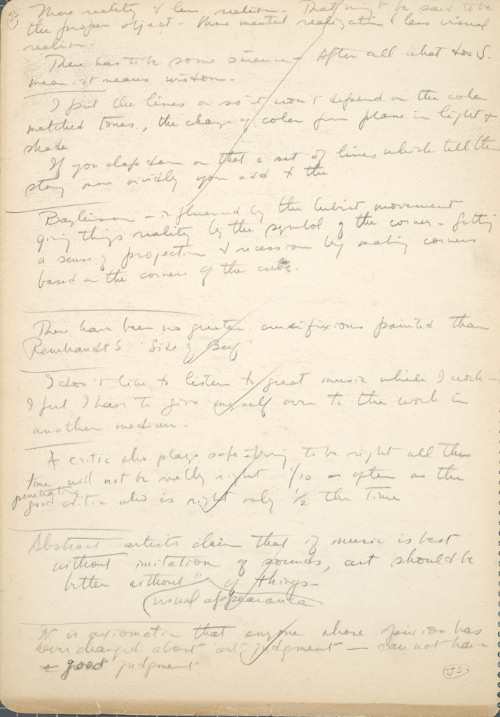 35
More reality & less realism. That might be said to be
the proper object - More mental realization & less visual
realism.
There has to be some science. After all what does S.
mean. it means wisdom.
I put the lines on so it won't depend on the color
matched tones, the change of color from plane in light &
shade
If you clap down on that a set of lines which tell the
story more vividly you add to the
Baylinson - influenced by the cubist movement
giving things reality by the symbol of the corner - getting
a sense of projection & recession by making corners
based on the corners of the cube.
There have been no greater crucifixions painted than
Rembrandt's "Side of Beef"
I don't like to listen to great music while I work -
I feel I have to give myself over to the work in
another medium.
A critic who plays safe - trying to be right all the
time, will not be really right 1/10 as often as the
penetrating
good critic who is right only 1/2 the time
Abstract artists claim that if music is best
without imitation of sounds, art should be
better without " of things -
visual appearance
It is axiomatic that anyone whose opinion has
been changed about art judgment - can not have
a good judgment
JS